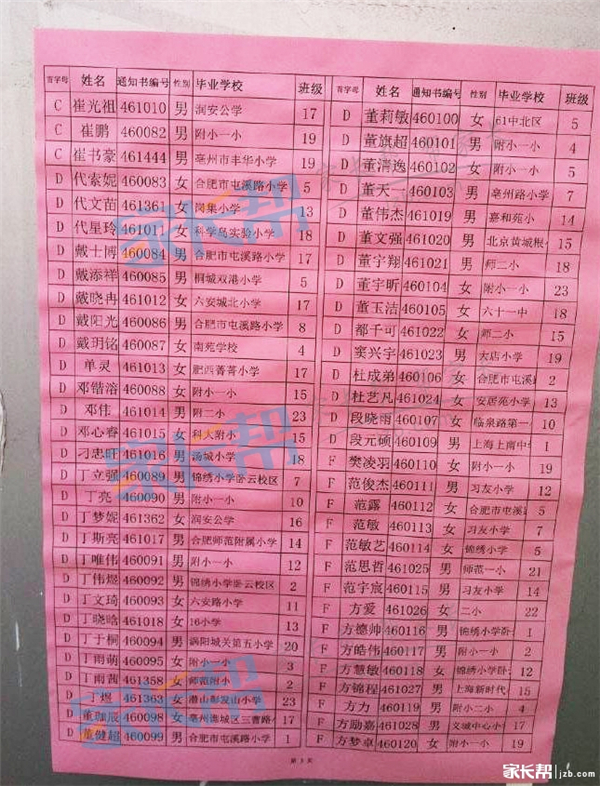 首字母 姓名 通知书编号 性别 毕业学校 班级
C 崔光祖 461010 男 润安公学 17
C 崔鹏 460082 男 附小一小 19
C 崔书豪 461444 男 亳州市丰华小学 19
D 代索妮 460083 女 合肥市屯溪路小学 5
D 代文苗 461361 女 岗集小学 13
D 代星玲 461011 女 科学岛实验小学 18
D 戴士博 460084 男 合肥市屯溪路小学 17
D 戴添祥 460085 男 桐城双港小学 5
D 戴晓冉 461012 女 六安城北小学 17
D 戴阳光 460086 男 合肥市屯溪路小学 8
D 戴玥铭 460087 女 南苑学校 4
D 单灵 461013 女 肥西菁菁小学 17
D 邓锴溶 460088 女 附小一小 15
D 邓伟 461014 男 附二小 23
D 邓心睿 461015 女 科大附小 15
D 刁忠旺 461016 男 汤城小学 18
D 丁立强 460089 男 锦绣小学卧云校区 7
D 丁亮 460090 男 附小一小 10
D 丁梦妮 461362 女 润安公学 16
D 丁斯亮 461017 男 合肥师范附属小学 14
D 丁唯伟 460091 男 附小一小 12
D 丁伟煜 460092 男 锦绣小学卧云校区 2
D 丁文琦 460093 女 六安路小学 11
D 丁晓晗 461018 女 16小学 13
D 丁于桐 460094 男 涡阳城关第五小学 20
D 丁雨萌 460095 女 附小一小 3
D 丁雨茜 461358 女 师范附小 2
D 丁煜 461363 女 潜山彰法山小学 23
D 董珈辰 460098 女 亳州谯城区三曹路 17
D 董健超 460099 男 合肥市屯溪路小学 1
首字母 姓名 通知书编号 性别 毕业学校 班级
D 董莉敏 460100 女 61中北区 5
D 董旗超 460101 男 附小一小 4
D 董清逸 460102 女 附小一小 5
D 董天一 460103 男 亳州路小学 7
D 董伟杰 461019 男 嘉和苑小学 14
D 董文强 461020 男 北京黄城根 15
D 董宇翔 461021 男 师二小 18
D 董宇昕 460104 女 附小一小 23
D 董玉洁 460105 女 六十一中 18
D 都千可 461022 女 师二小 15
D 窦兴宇 461023 男 大店小学 19
D 杜成弟 460106 女 合肥市屯溪 2
D 杜艺凡 461024 女 安居苑小学 13
D 段晓雨 460107 女 临泉路第一 10
D 段元硕 460109 男 上海上南中 1
F 樊凌羽 460110 女 附小一小 19
F 范俊杰 460111 男 习友小学 12
F 范露 460112 女 合肥市屯溪 5
F 范敏 460113 女 习友小学 7
F 范敏艺 460114 女 锦绣小学 5
F 范思哲 461025 男 师范一小 21
F 范宇宸 460115 男 习友小学 14
F 方爱 461026 女 二小 22
F 方德帅 460116 男 锦绣小学卧 1
F 方皓伟 460117 男 附小一小 2
F 方慧敏 460118 女 锦绣小学卧 12
F 方锦程 461027 男 上海新时代 15
F 方力 460119 男 附小二小 4
F 方励嘉 461028 男 义城中心小 17
F 方梦卓 460120 女 附小一小 19
第 3 页
家长帮
家长帮
家长帮
家长帮 jzb.com